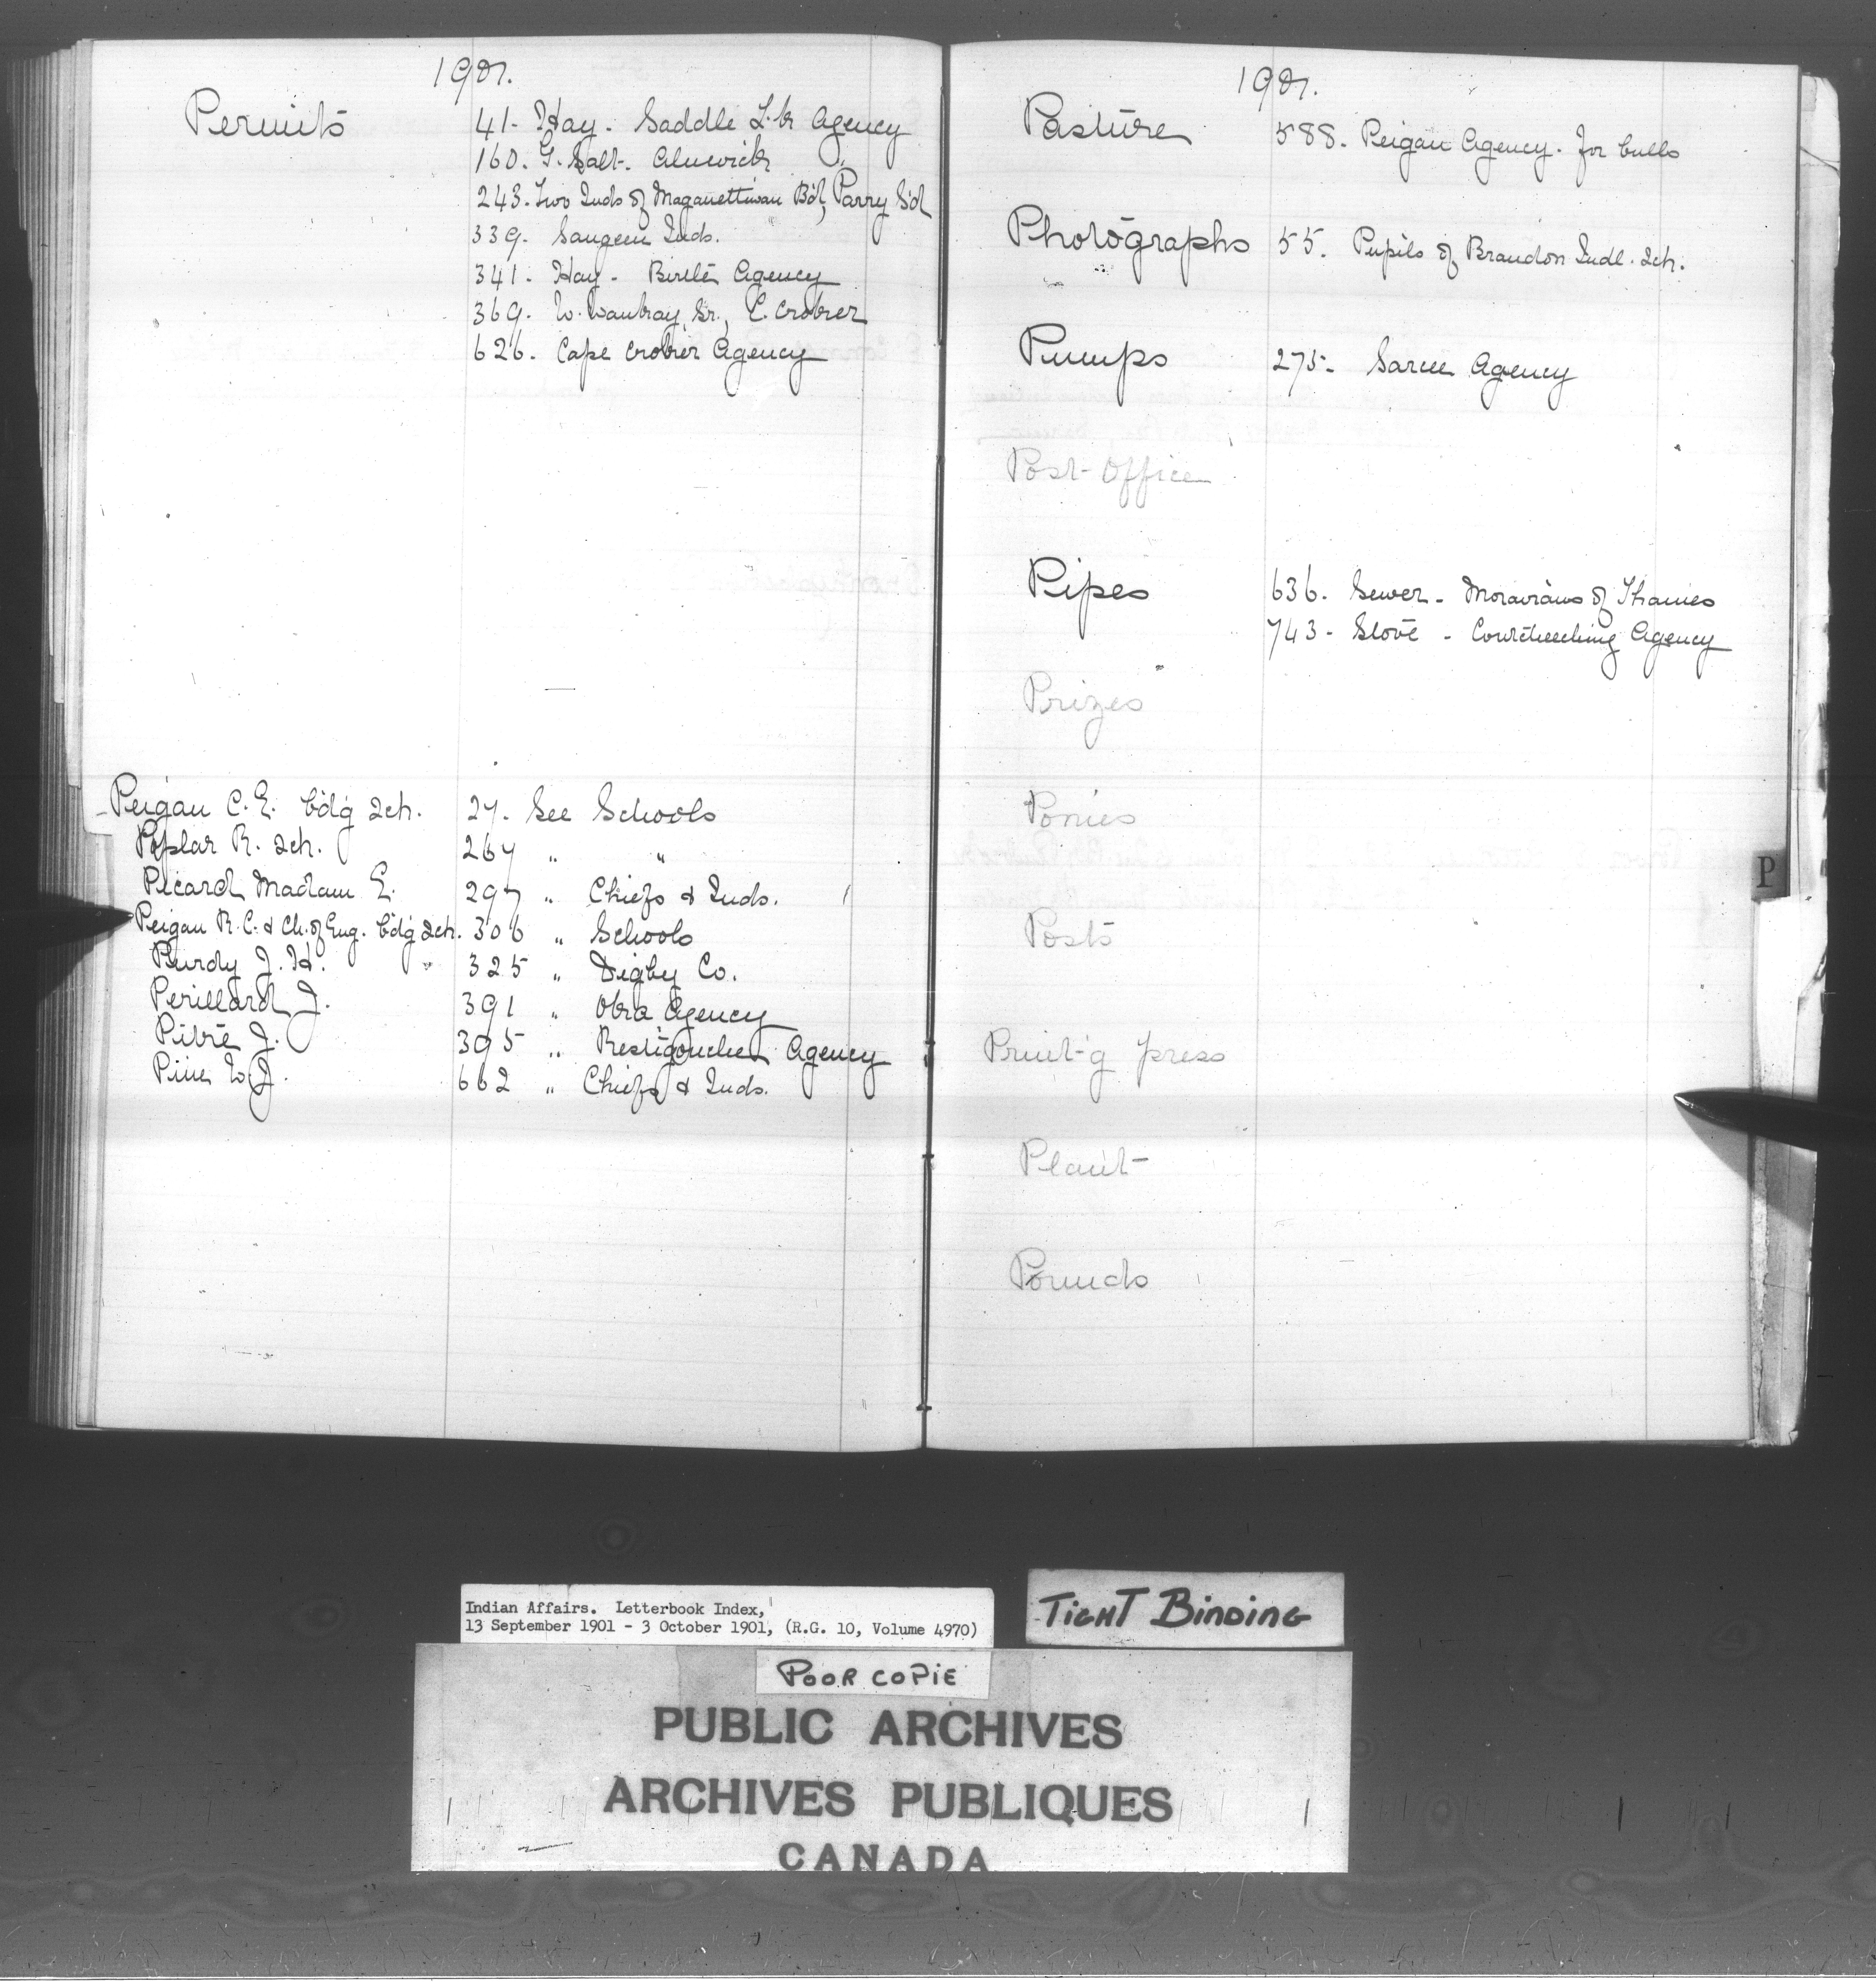 1901.
Permits
41- Hay. Saddle L-k Agency
160. G. Salt. Alnwick "
243. Two Inds of Maganettiwan Bd, Parry Sd
339. Saugeen Inds.
341- Hay - Birtle Agency
369. W. Waukay, Sr., C. Croker
626. Cape Croker Agency
Peigan C. E. bdg Sch. 27. See Schools
Poplar R. Sch. 267 " "
Picard Madam E. 297 " Chiefs & Inds.
Peigan R. C. & Ch. of Eng. bdg Sch. 306 " Schools
Purdy J. H. 325 " Digby Co.
Perillard J. 391 " Oka Agency
Pitre J. 395 " Restigouche Agency
Pine W J. 662 " Chiefs & Inds.
1901.
Pasture 588. Peigan Agency. for bulls
Photographs 55. Pupils of Brandon Indl. Sch.
Pumps 275- Sarcee Agency
Post-Office
Pipes 636. Sewer - Moravians of Thames
743- Stove - Coutcheeching Agency
Prizes
Ponies
Posts
Print-g press
Plant-
Pounds
P
Indian Affairs. Letterbook Index,
13 September 1901 - 3 October 1901, (R.G. 10, Volume 4970)
TIGHT BINDING
POOR COPIE
PUBLIC ARCHIVES
ARCHIVES PUBLIQUES
CANADA